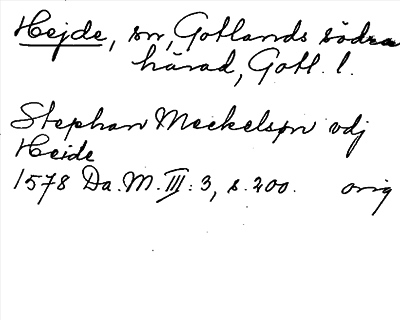 Hejde, sn, Gotlands södra
härad, Gotl. l.
Stephan Meckelspn vdj
Heide
1578 Da. M. III: 3, s. 200. orig